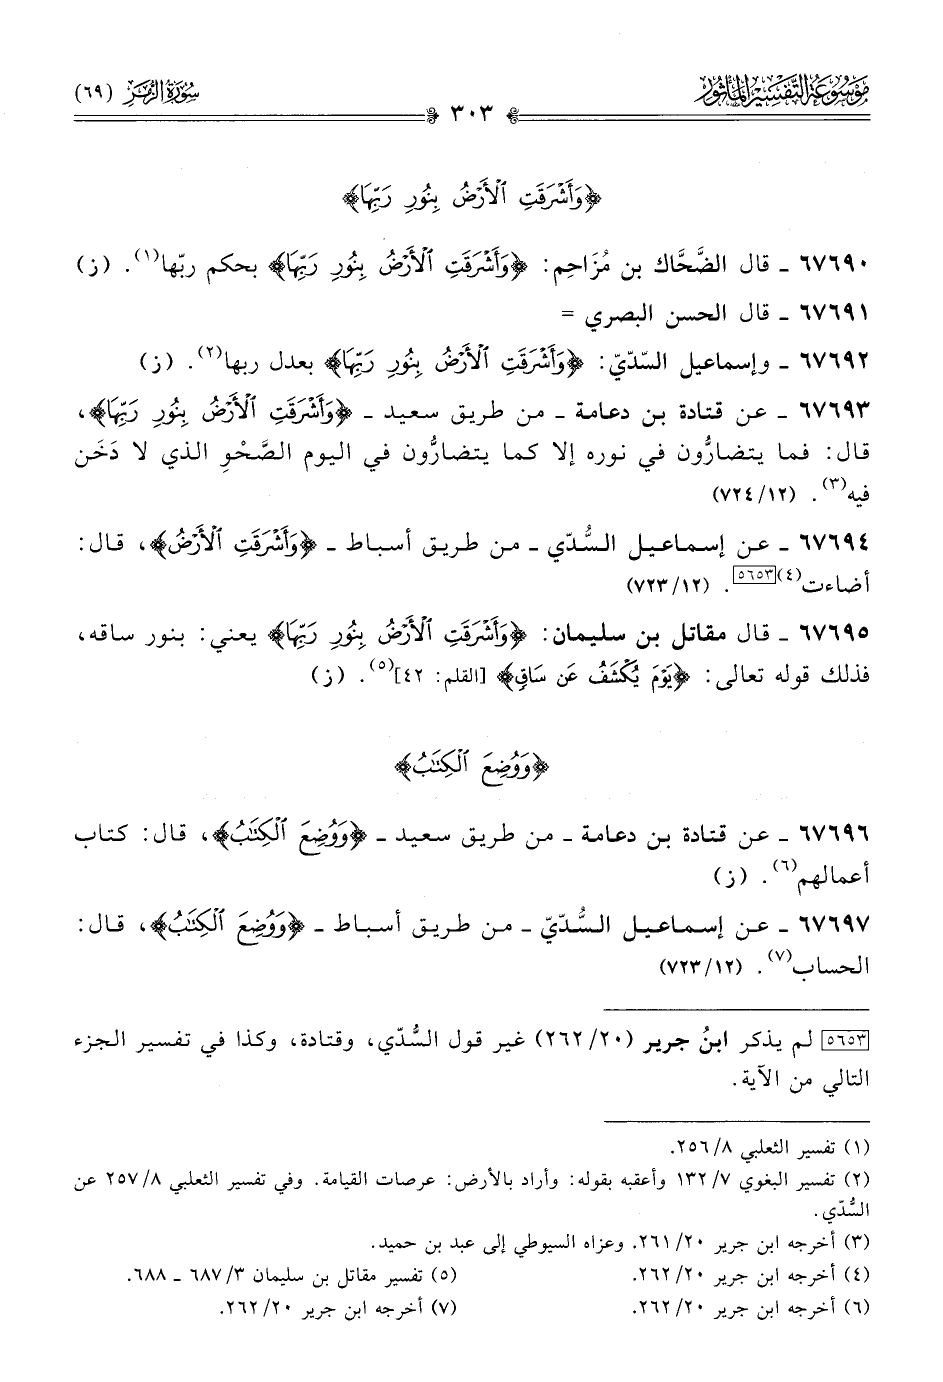 مَوْسُوعَةُ التَّفْسِيرِ الْمَأْثُورِ
سُورَةُ الزُّمَرِ (٦٩)
٣٠٣
﴿وَأَشْرَقَتِ ٱلْأَرْضُ بِنُورِ رَبِّهَا﴾
٦٧٦٩٠ ـ قال الضَّحَّاك بن مُزَاحِم: ﴿وَأَشْرَقَتِ ٱلْأَرْضُ بِنُورِ رَبِّهَا﴾ بحكم ربّها(١). (ز)
٦٧٦٩١ ـ قال الحسن البصري =
٦٧٦٩٢ ـ وإسماعيل السّدّيّ: ﴿وَأَشْرَقَتِ ٱلْأَرْضُ بِنُورِ رَبِّهَا﴾ بعدل ربها(٢). (ز)
٦٧٦٩٣ ـ عن قتادة بن دعامة ـ من طريق سعيد ـ ﴿وَأَشْرَقَتِ ٱلْأَرْضُ بِنُورِ رَبِّهَا﴾،
قال: فما يتضارُّون في نوره إلا كما يتضارُّون في اليوم الصَّحْوِ الذي لا دَخَن
فيه(٣). (٧٢٤/١٢)
٦٧٦٩٤ ـ عن إسماعيل السُّدّي ـ من طريق أسباط ـ ﴿وَأَشْرَقَتِ ٱلْأَرْضُ﴾، قال:
أضاءت(٤)[٥٦٥٣]. (٧٢٣/١٢)
٦٧٦٩٥ ـ قال مقاتل بن سليمان: ﴿وَأَشْرَقَتِ ٱلْأَرْضُ بِنُورِ رَبِّهَا﴾ يعني: بنور ساقه،
فذلك قوله تعالى: ﴿يَوْمَ يُكْشَفُ عَن سَاقٍ﴾ [القلم: ٤٢](٥). (ز)
﴿وَوُضِعَ ٱلْكِتَٰبُ﴾
٦٧٦٩٦ ـ عن قتادة بن دعامة ـ من طريق سعيد ـ ﴿وَوُضِعَ ٱلْكِتَٰبُ﴾، قال: كتاب
أعمالهم(٦). (ز)
٦٧٦٩٧ ـ عن إسماعيل السُّدّيّ ـ من طريق أسباط ـ ﴿وَوُضِعَ ٱلْكِتَٰبُ﴾، قال:
الحساب(٧). (٧٢٣/١٢)
[٥٦٥٣] لم يذكر ابنُ جرير (٢٦٢/٢٠) غير قول السُّدّي، وقتادة، وكذا في تفسير الجزء
التالي من الآية.
(١) تفسير الثعلبي ٢٥٦/٨.
(٢) تفسير البغوي ١٣٢/٧ وأعقبه بقوله: وأراد بالأرض: عرصات القيامة. وفي تفسير الثعلبي ٢٥٧/٨ عن
السُّدّي.
(٣) أخرجه ابن جرير ٢٦١/٢٠. وعزاه السيوطي إلى عبد بن حميد.
(٤) أخرجه ابن جرير ٢٦٢/٢٠. (٥) تفسير مقاتل بن سليمان ٦٨٧/٣ ـ ٦٨٨.
(٦) أخرجه ابن جرير ٢٦٢/٢٠. (٧) أخرجه ابن جرير ٢٦٢/٢٠.